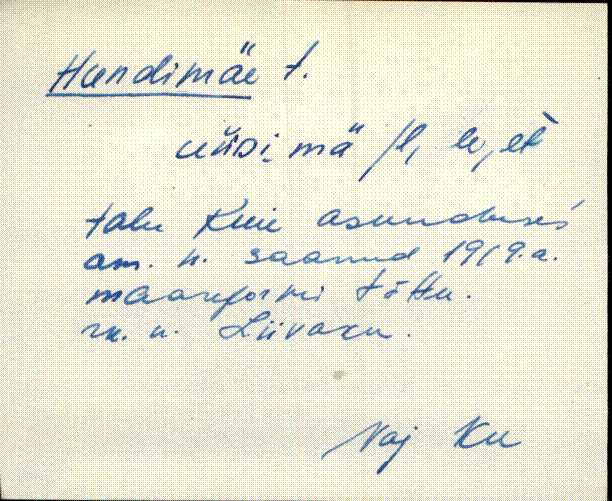 Hundimäe t.
uńDi̮mä /l, le, et
talu Kuie asunduses
am. n. saanud 1919.a.
maareformi tõttu.
rx. n. Liivaxu.
Vaj Ku